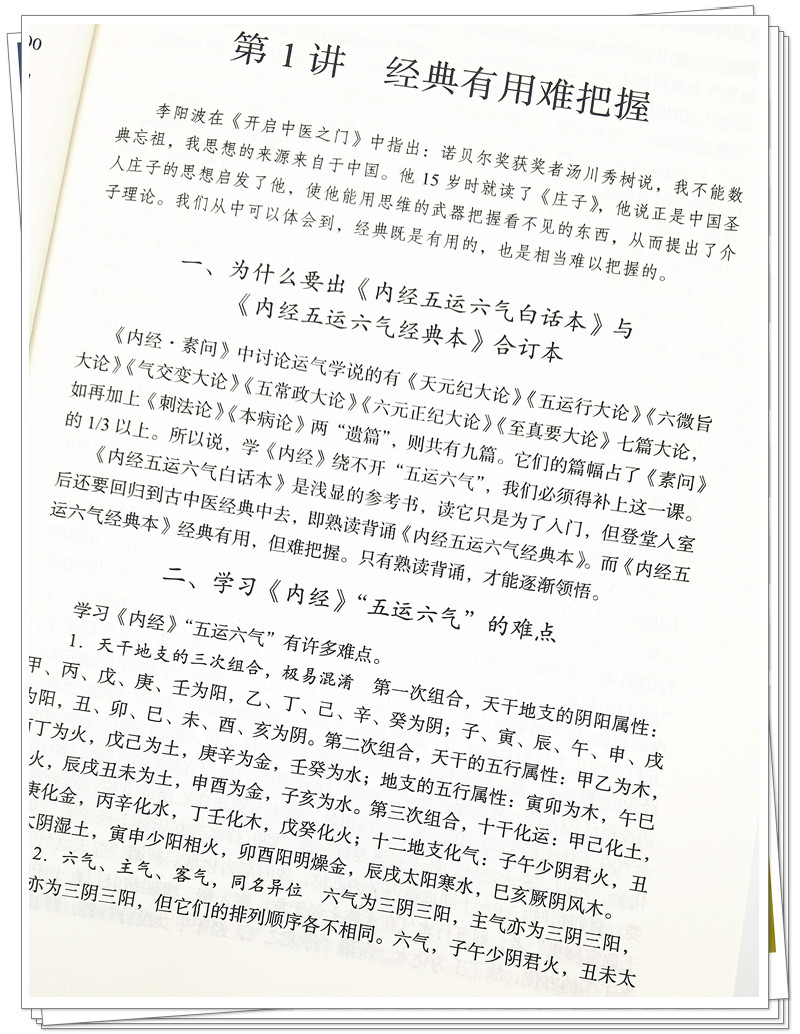 00
第1讲 经典有用难把握
李阳波在《开启中医之门》中指出：诺贝尔奖获奖者汤川秀树说，我不能数
典忘祖，我思想的来源来自于中国。他 15 岁时就读了《庄子》，他说正是中国圣
人庄子的思想启发了他，使他能用思维的武器把握看不见的东西，从而提出了介
子理论。我们从中可以体会到，经典既是有用的，也是相当难以把握的。
一、为什么要出《内经五运六气白话本》与
《内经五运六气经典本》合订本
《内经·素问》中讨论运气学说的有《天元纪大论》《五运行大论》《六微旨
大论》《气交变大论》《五常政大论》《六元正纪大论》《至真要大论》七篇大论，
如再加上《刺法论》《本病论》两“遗篇”，则共有九篇。它们的篇幅占了《素问》
的 1/3 以上。所以说，学《内经》绕不开“五运六气”，我们必须得补上这一课。
《内经五运六气白话本》是浅显的参考书，读它只是为了入门，但登堂入室
后还要回归到古中医经典中去，即熟读背诵《内经五运六气经典本》。而《内经五
运六气经典本》经典有用，但难把握。只有熟读背诵，才能逐渐领悟。
二、学习《内经》“五运六气”的难点
学习《内经》“五运六气”有许多难点。
1．天干地支的三次组合，极易混淆 第一次组合，天干地支的阴阳属性：
甲、丙、戊、庚、壬为阳，乙、丁、己、辛、癸为阴；子、寅、辰、午、申、戌
为阳，丑、卯、巳、未、酉、亥为阴。第二次组合，天干的五行属性：甲乙为木，
丙丁为火，戊己为土，庚辛为金，壬癸为水；地支的五行属性：寅卯为木，午巳
火，辰戌丑未为土，申酉为金，子亥为水。第三次组合，十干化运：甲己化土，
庚化金，丙辛化水，丁壬化木，戊癸化火；十二地支化气：子午少阴君火，丑
太阴湿土，寅申少阳相火，卯酉阳明燥金，辰戌太阳寒水，巳亥厥阴风木。
2．六气、主气、客气，同名异位 六气为三阴三阳，主气亦为三阴三阳，
亦为三阴三阳，但它们的排列顺序各不相同。六气，子午少阴君火，丑未太